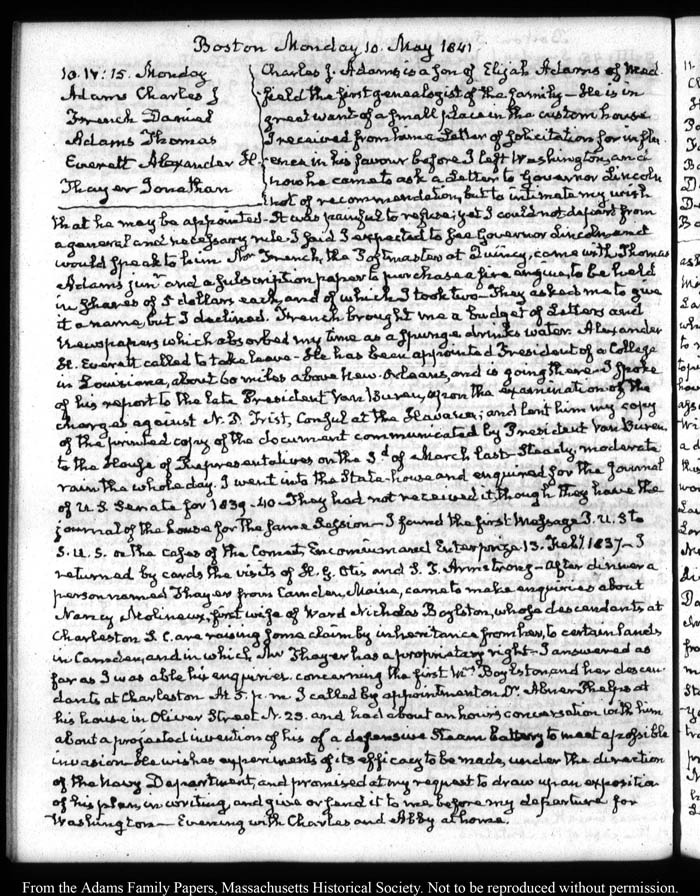 Boston Monday 10. May 1841
10. IV: 15. Monday
Adams Charles J
French Daniel
Adams Thomas
Everett Alexander H.
Thayer Jonathan
Charles J. Adams is a son of Elijah Adams of Med
field the first genealogist of the family – He is in
great want of a small place in the custom house
I received from him a Letter of solicitation for influ
ence in his favour before I left Washington, and
now he came to ask a Letter to Governor Lincoln
not of recommendation, but to intimate my wish
that he may be appointed – It was painful to refuse; yet I could not depart from
a general and necessary rule – I said I expected to see Governor Lincoln and
would speak to him Mr French, the Postmaster at Quincy, came with Thomas
Adams junr and a subscription paper to purchase a fire engine, to be held
in shares of 5 dollars each, and of which I took two – They asked me to give
it a name, but I declined. French brought me a budget of Letters and
Newspapers which absorbed my time as a spunge drinks water. Alexander
H. Everett called to take leave – He has been appointed President of a College
in Louisiana, about 60 miles above New-Orleans, and is going there – I spoke
of his report to the late President Van Buren, upon the examination of the
charges against N. P. Trist, Consul at the Havana; and lent him my copy
of the printed copy of the document communicated by President Van Buren
to the House of Representatives on the 3d of March last – Steady, moderate
rain the whole day. I went into the State-house and enquired for the Journal
of U. S. Senate for 1839-40 – They had not received it, though they have the
journal of the house for the same Session – I found the first Message P. U. S to
S. U. S. on the cases of the Comet, Encomium and Enterprize 13. Feby 1837 – I
returned by cards the visits of H. G. Otis and S. T. Armstrong – After dinner a
person named Thayer from Camden, Maine, came to make enquiries about
Nancy Molineux, first wife of Ward Nicholas Boylston, whose descendants at
Charleston S. C. are raising some claim by inheritance from her, to certain lands
in Camden, and in which Mr Thayer has a proprietary right – I answered as
far as I was able his enquiries concerning the first Mrs Boylston and her descen
dants at Charleston At 5. p. m. I called by appointment on Dr Abner Phelps at
his house in Oliver Street N. 23. and had about an hour's conversation with him
about a projected invention of his of a defensive Steam battery to meet a possible
invasion He wishes experiments of its efficacy to be made, under the direction
of the Navy Department, and promised at my request to draw up an exposition
of his plan in writing, and give or send it to me, before my departure for
Washington – Evening with Charles and Abby at home.
From the Adams Family Papers, Massachusetts Historical Society. Not to be reproduced without permission.